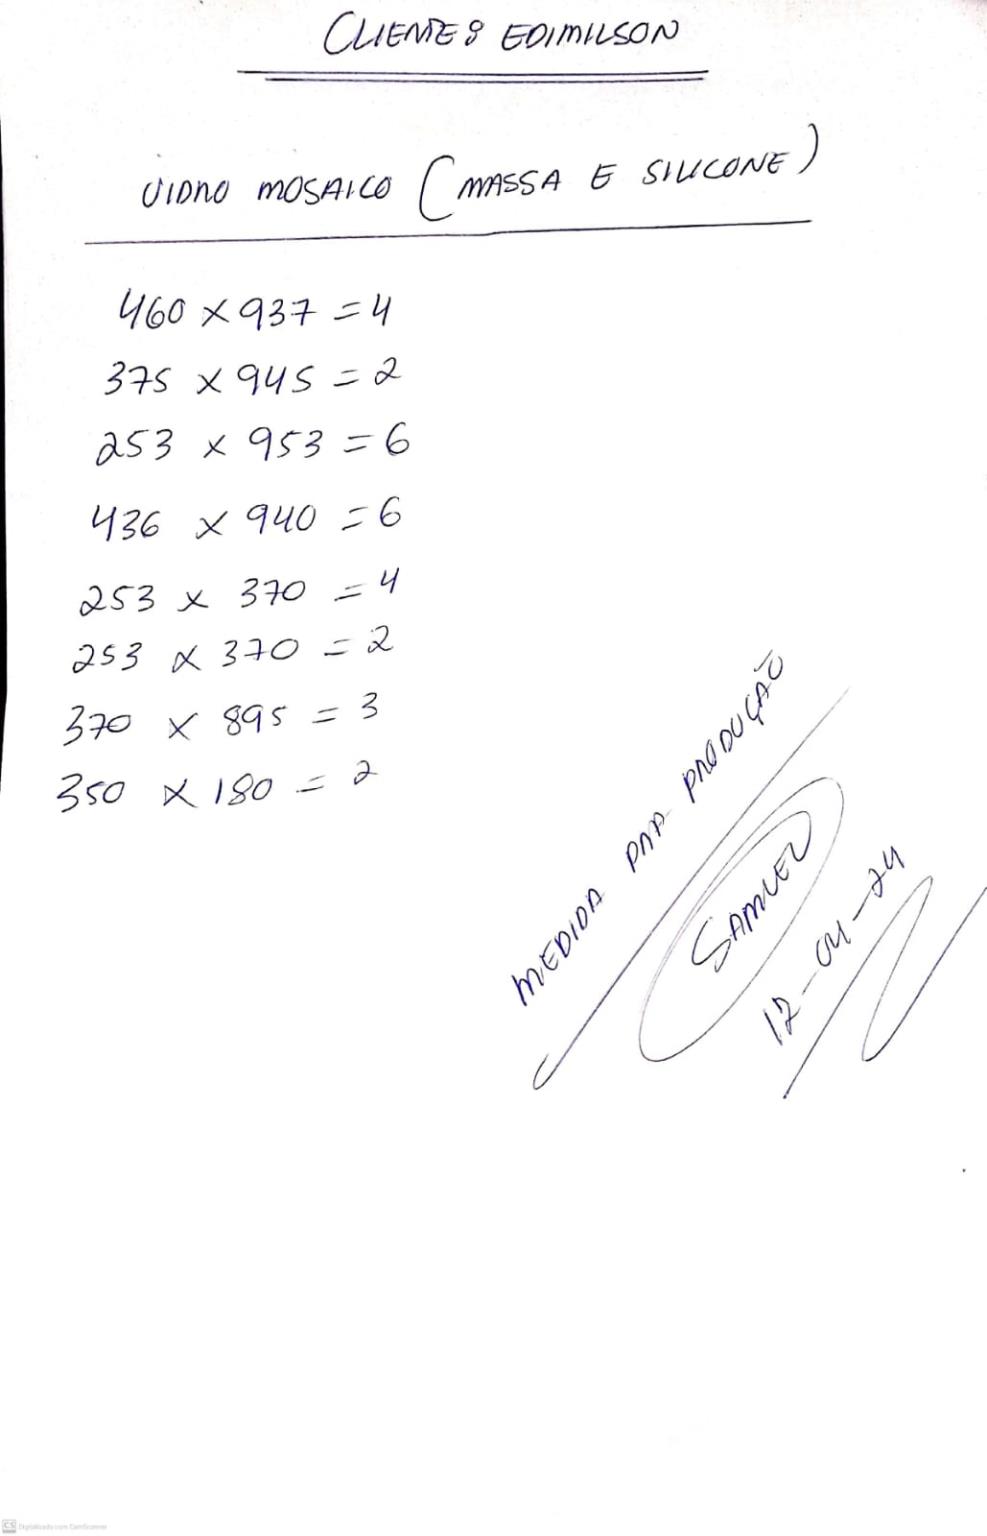 CLIENTE: EDIMILSON
VIDRO MOSAICO (MASSA E SILICONE)
460 x 937 = 4
375 x 945 = 2
253 x 953 = 6
436 x 940 = 6
253 x 370 = 4
253 x 370 = 2
370 x 895 = 3
350 x 180 = 2
MEDIDA PRA PRODUÇÃO
SAMUEL
12-04-24
CS Digitalizado com CamScanner